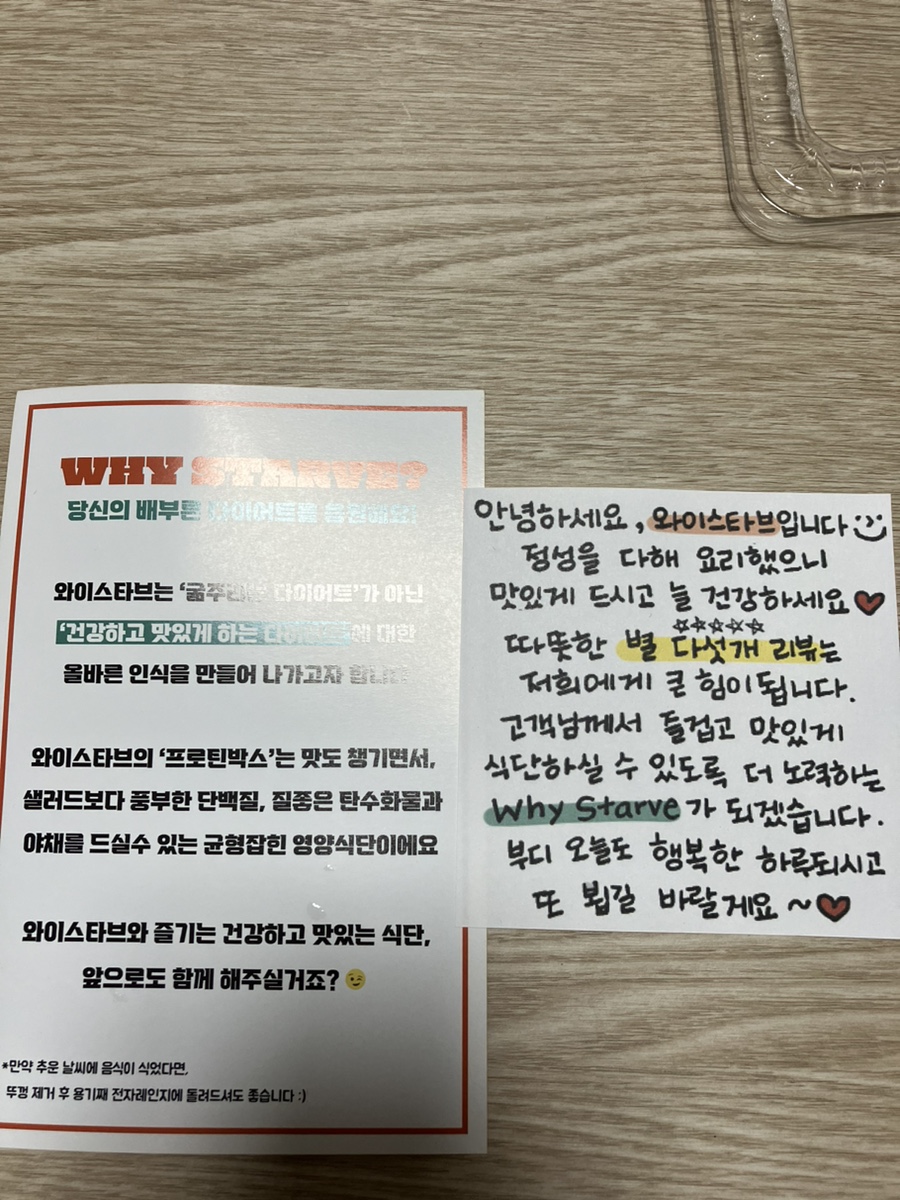 WHY STARVE?
당신의 배부른 다이어트를 응원해요!
와이스타브는 ‘굶주리는 다이어트’가 아닌
‘건강하고 맛있게 하는 다이어트’에 대한
올바른 인식을 만들어 나가고자 합니다.
와이스타브의 ‘프로틴박스’는 맛도 챙기면서,
샐러드보다 풍부한 단백질, 질좋은 탄수화물과
야채를 드실수 있는 균형잡힌 영양식단이에요
와이스타브와 즐기는 건강하고 맛있는 식단,
앞으로도 함께 해주실거죠? 😉
*만약 추운 날씨에 음식이 식었다면,
뚜껑 제거 후 용기째 전자레인지에 돌려드셔도 좋습니다 :)
안녕하세요, 와이스타브입니다
정성을 다해 요리했으니
맛있게 드시고 늘 건강하세요♥
☆☆☆☆☆
따뜻한 별 다섯개 리뷰는
저희에게 큰 힘이 됩니다.
고객님께서 즐겁고 맛있게
식단하실 수 있도록 더 노력하는
Why Starve가 되겠습니다.
부디 오늘도 행복한 하루되시고
또 뵙길 바랄게요~♥